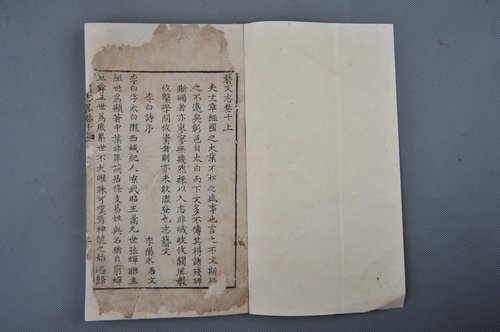 藝文志卷十上
夫文章經國之大業不朽之盛事也言之不文斯行
之不遠矣彰邑自太白而下文多不傳其得諸殘碑
斷碣者亦寥寥無幾然採以入志非城政攸關風教
攸繫學問攸資者則亦未敢濫登也志藝文
李白詩序 李陽冰 唐文
李白字太白隴西成紀人涼武昭王暠九世孫蟬聯珪
組世爲顯著中葉非罪謫居條支易姓與名猶自窮蟬
舜五世爲庶累世不大曜殊可嘆焉神龍之始逃歸